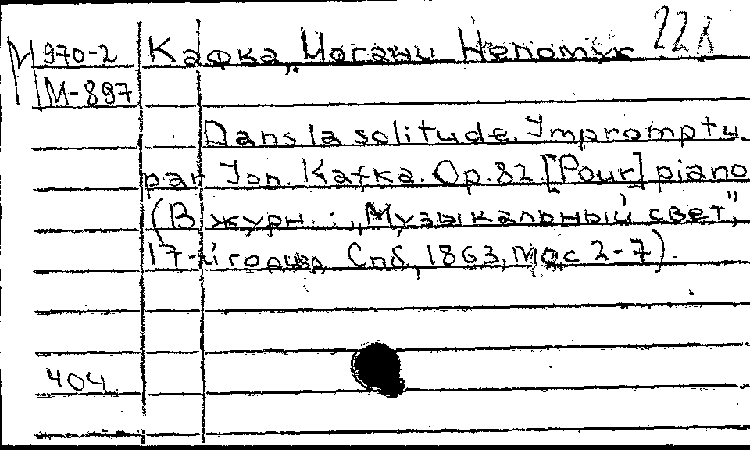 М 970-2 Кафка, Иоганн Непомук 228
М-897
Dans la solitude. Impromptu
par Jon. Kafka. Op. 82. [Pour] piano
(В журн.: „Музыкальный свет",
17-й год изд, Спб, 1863, №ос 2-7).
404